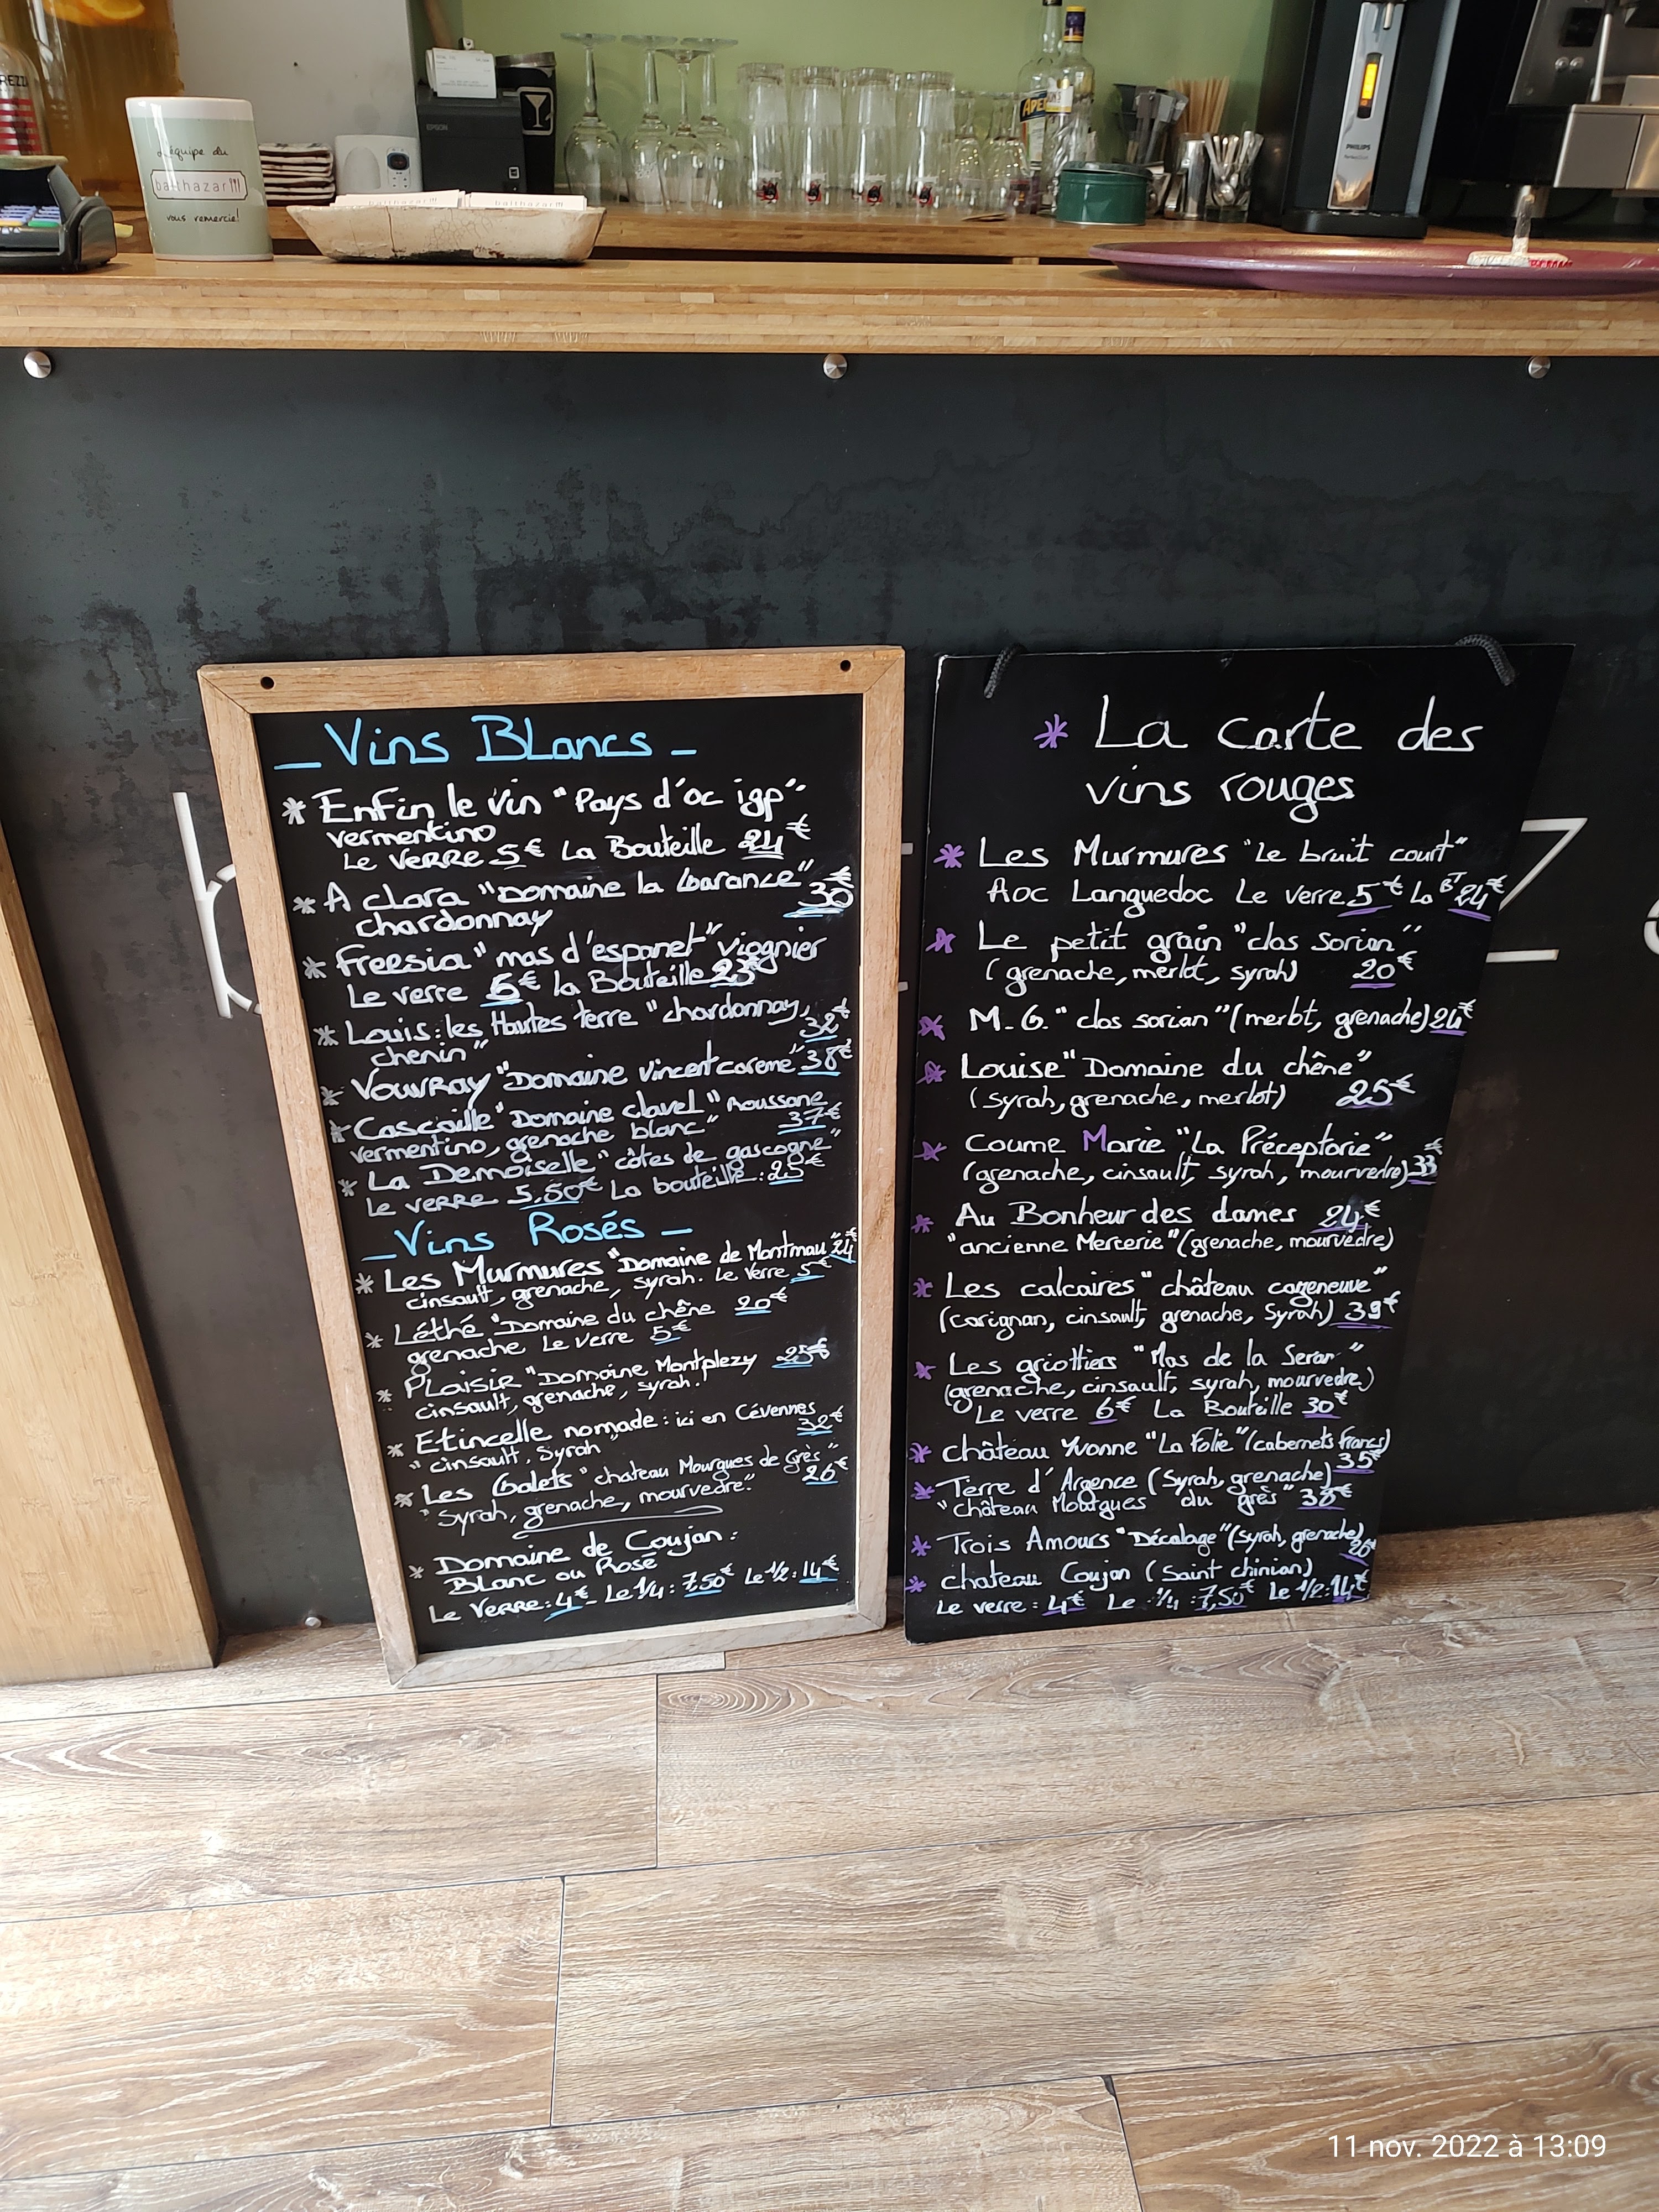 REZZI
L'équipe du
balthazar
vous remercie!
EPSON
balthazar
balthazar
APE
PHILIPS
_ Vins BLancs _
* Enfin le Vin "Pays d'oc igp"
vermentino
Le VERRE 5€ La Bouteille 24€
* A clara "Domaine la Garance" 30€
chardonnay
* Freesia "mas d'espanet" viognier
Le verre 5€ la Bouteille 25€
* Louis: les Hautes terre "chardonnay, 32€
chenin"
* VouvRay "Domaine vincent careme" 38€
* Cascaille "Domaine clavel" Roussane
vermentino, grenache blanc" 37€
* La Demoiselle "côtes de gascogne"
Le verre 5.50€ La bouteille: 25€
_ Vins Rosés _
* Les Murmures "Domaine de Montmau" 24€
cinsault, grenache, syrah. Le Verre 5€
* Léthé "Domaine du chêne 20€
grenache Le verre 5€
* PLaisir "Domaine Montplezy 25€
cinsault, grenache, syrah.
* Etincelle nomade: ici en Cévennes 32€
"cinsault, Syrah"
* Les Galets "chateau Mourgues de Grès" 26€
"Syrah, grenache, mourvedre."
* Domaine de Coujan:
Blanc ou Rosé
Le Verre: 4€ - Le 1/4: 7,50€ Le 1/2: 14€
* La carte des
vins rouges
* Les Murmures "Le bruit court"
Aoc Languedoc Le verre 5€ La BT 24€
* Le petit grain "clos sorian"
(grenache, merlot, syrah) 20€
* M.G. "clos sorian" (merlot, grenache) 24€
* Louise "Domaine du chêne"
(syrah, grenache, merlot) 25€
* Coume Marie "La Préceptorie"
(grenache, cinsault, syrah, mourvedre) 33€
* Au Bonheur des dames 24€
"ancienne Mercerie" (grenache, mourvedre)
* Les calcaires "château cazeneuve"
(carignan, cinsault, grenache, Syrah) 39€
* Les griottiers "Mas de la Seran"
(grenache, cinsault, syrah, mourvedre)
Le verre 6€ La Bouteille 30€
* château Yvonne "La Folie" (cabernets francs)
35€
* Terre d'Argence (Syrah, grenache)
"Château Mourgues du grès" 38€
* Trois Amours "Décalage" (syrah, grenache)
26€
* chateau Coujan (Saint chinian)
Le verre: 4€ Le 1/4: 7,50€ Le 1/2: 14€
11 nov. 2022 à 13:09